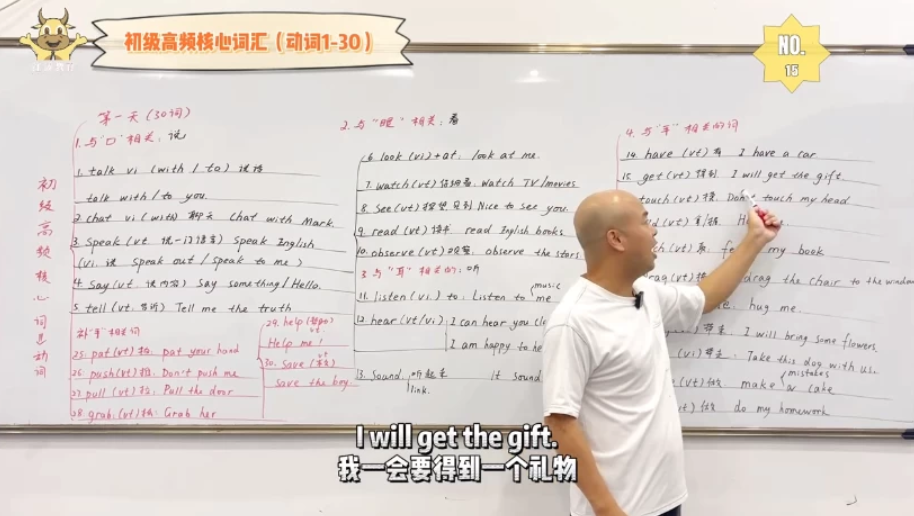 初级高频核心词汇（动词1-30）
NO.
15
初级高频核心词汇动词
第一天(30词)
1.与"口"相关：说
1. talk vi (with / to) 说话
talk with / to you.
2. chat vi (with) 聊天 Chat with Mark.
3. Speak (vt 说一门语言) Speak English
(vi. 说 Speak out / speak to me)
4. Say (vt 说内容) Say something / Hello.
5. tell (vt. 告诉) Tell me the truth
25. pat (vt) 拍. pat your hand
26. push (vt) Don't push me
27. pull (vt) 拉: Pull the door
28. grab. (vt) Grab her
29. help
Help me!
30. Save
Save the boy.
2.与"眼"相关：看
6. look (vi) + at. look at me.
7. watch (vt) Watch TV / movies
8. See (vt) Nice to see you.
9. read (vt) read English books.
10. observe (vt) 观察, observe the stars
3 与"耳"相关的：听
11. listen (vi.) to: Listen to me
music
12. hear (vt/vi) I can hear you
I am happy to
13. Sound 听起来 it sound
link.
4. 与"手"相关的词
14. have (vt) 有 I have a car.
15. get (vt) 得到 I will get the gift.
touch (vt) touch my head
my book
drag the chair to the window
hug me.
I will bring some flowers.
(vi) Take this dog with us.
(vt) 做 make a cake
mistakes
(vt) 做 do my homework
I will get the gift.
我一会要得到一个礼物